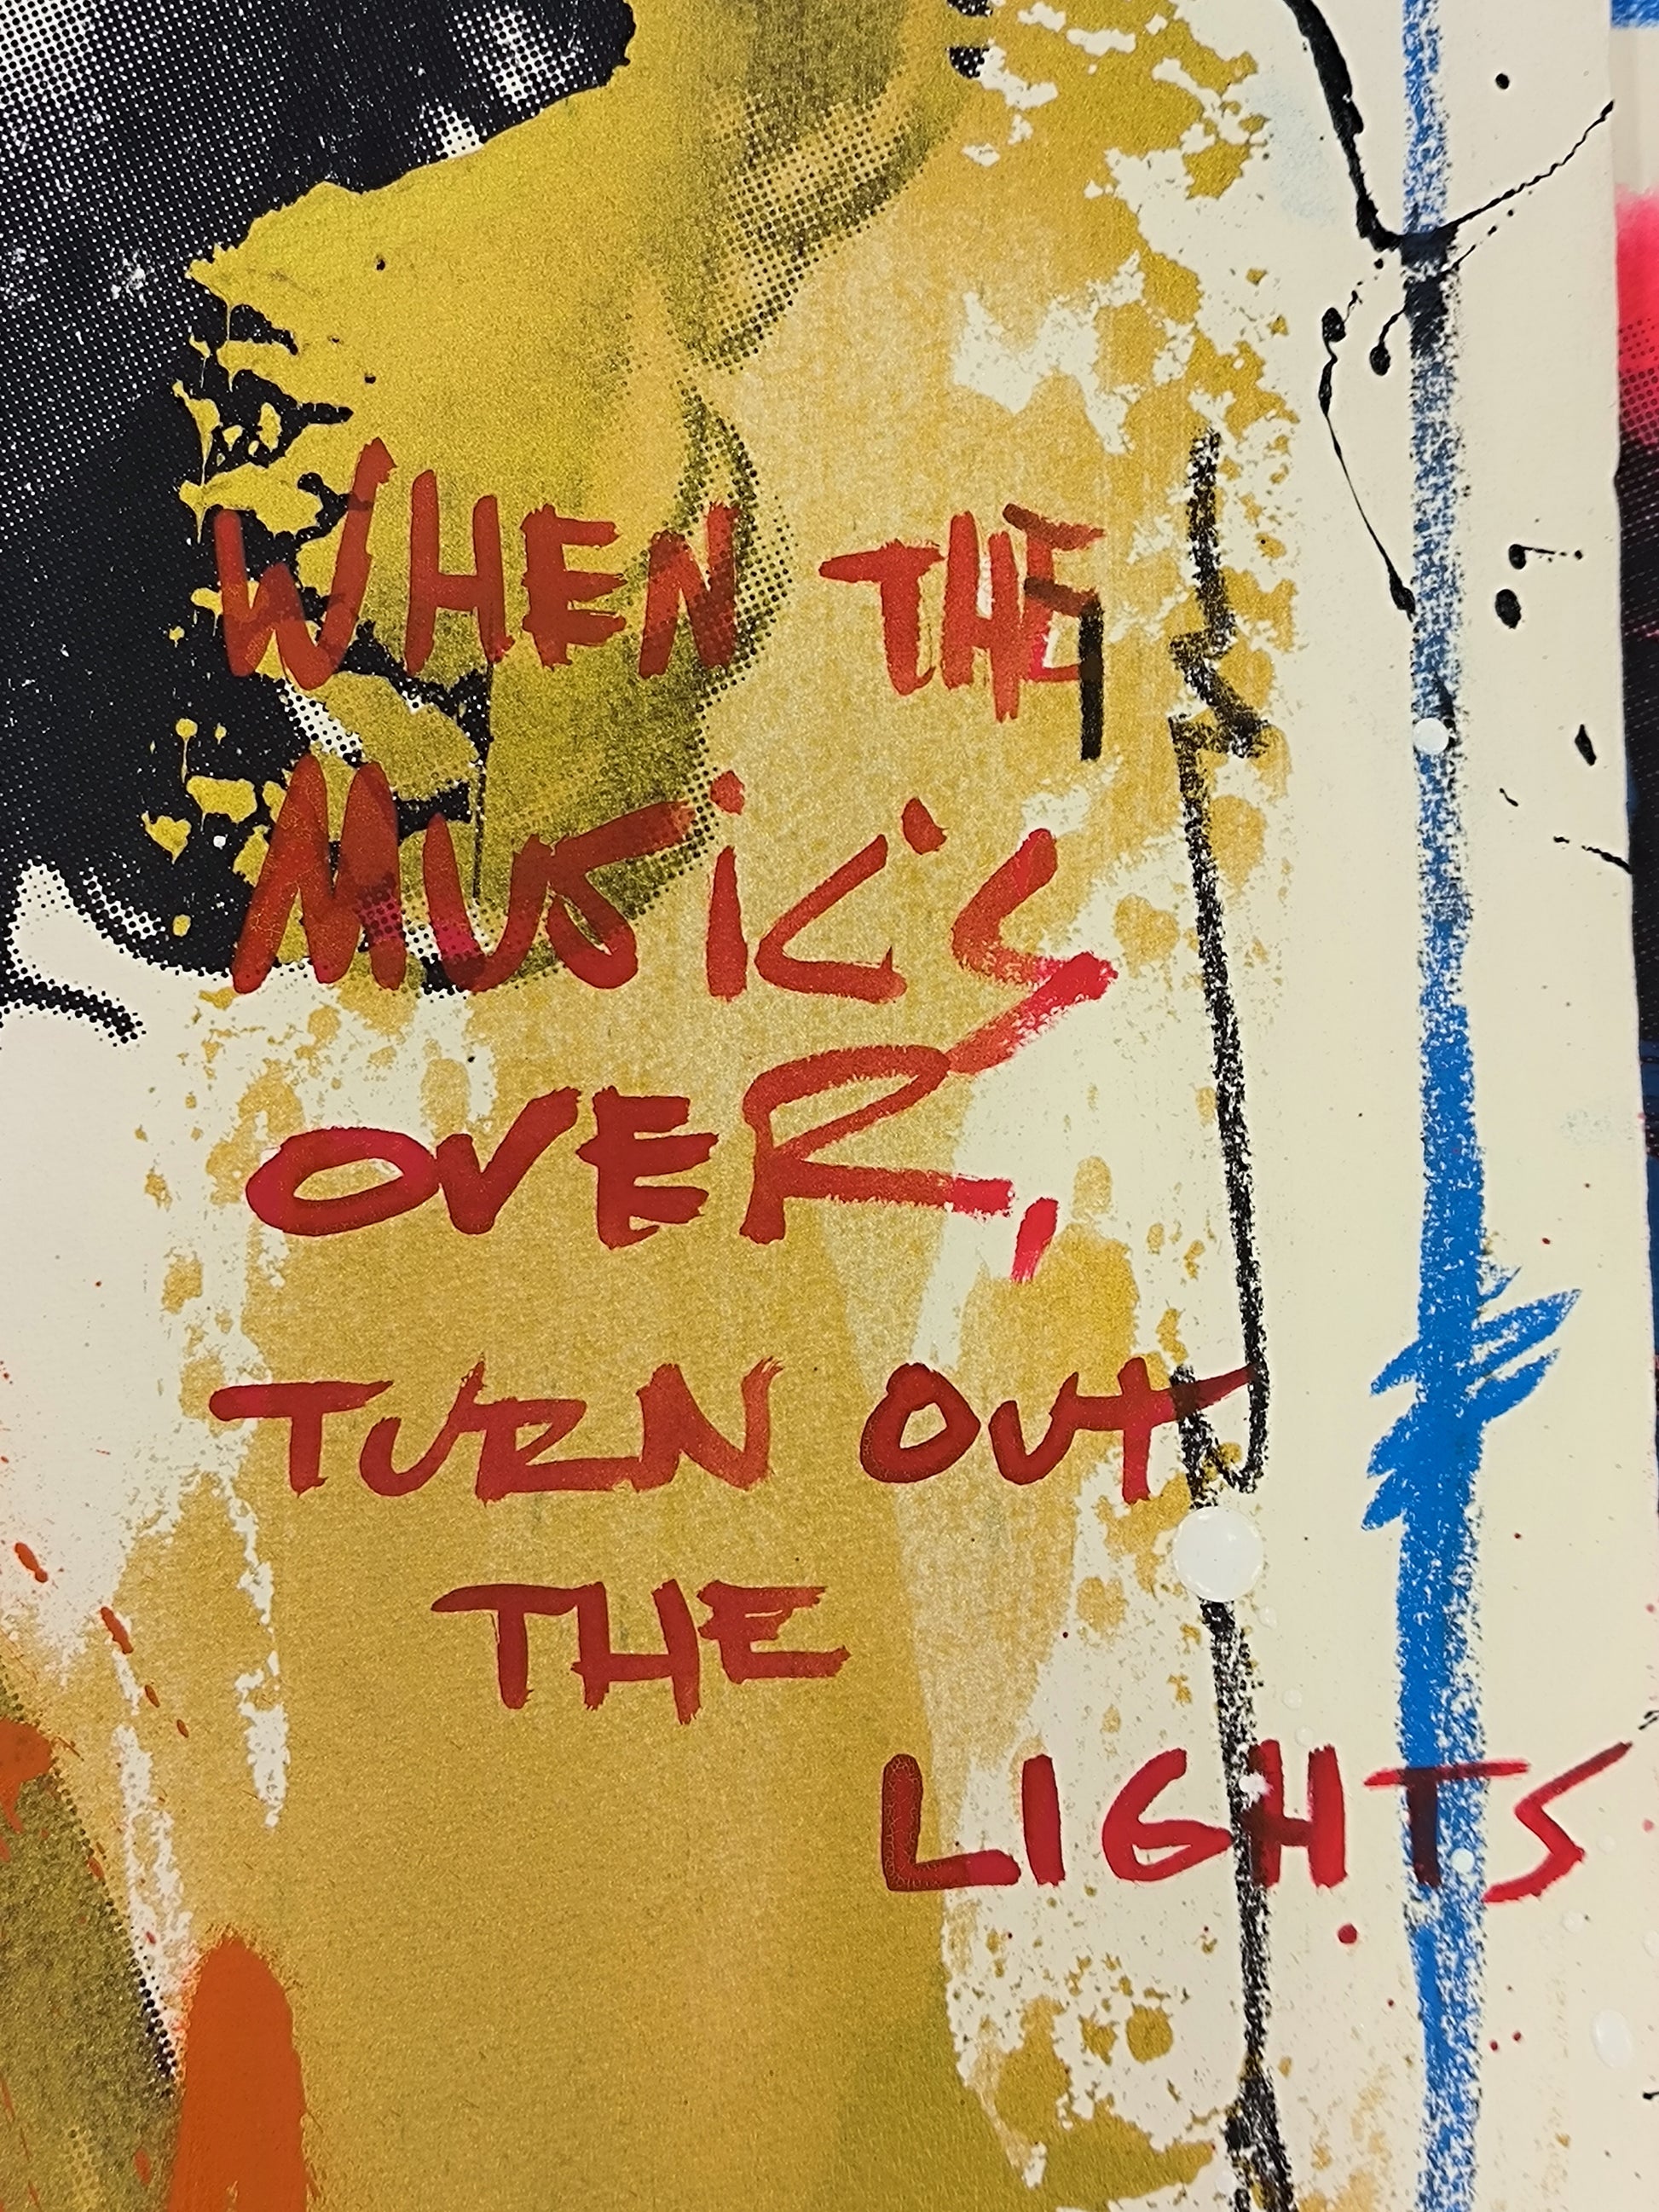 WHEN THE
MUSIC'S
OVER,
TURN OUT
THE
LIGHTS